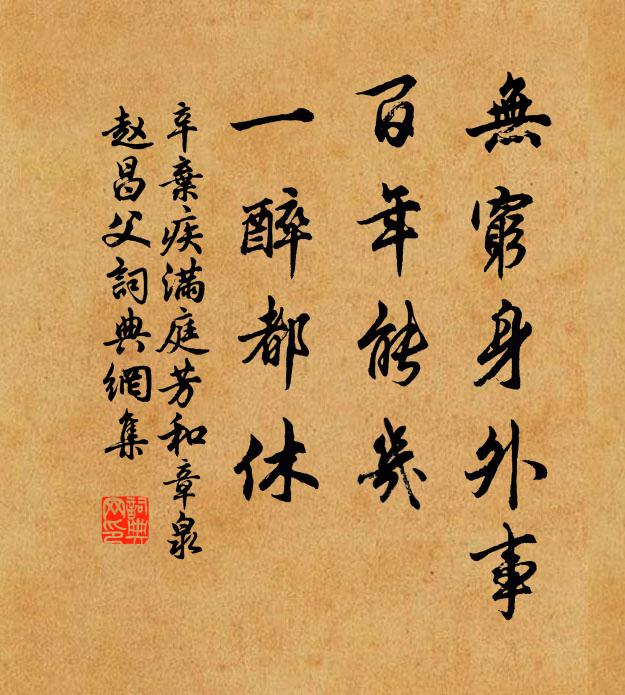 無窮身外事
百年能幾
一醉都休
辛棄疾滿庭芳和章泉
赵昌父詞典網集
詞典
网印